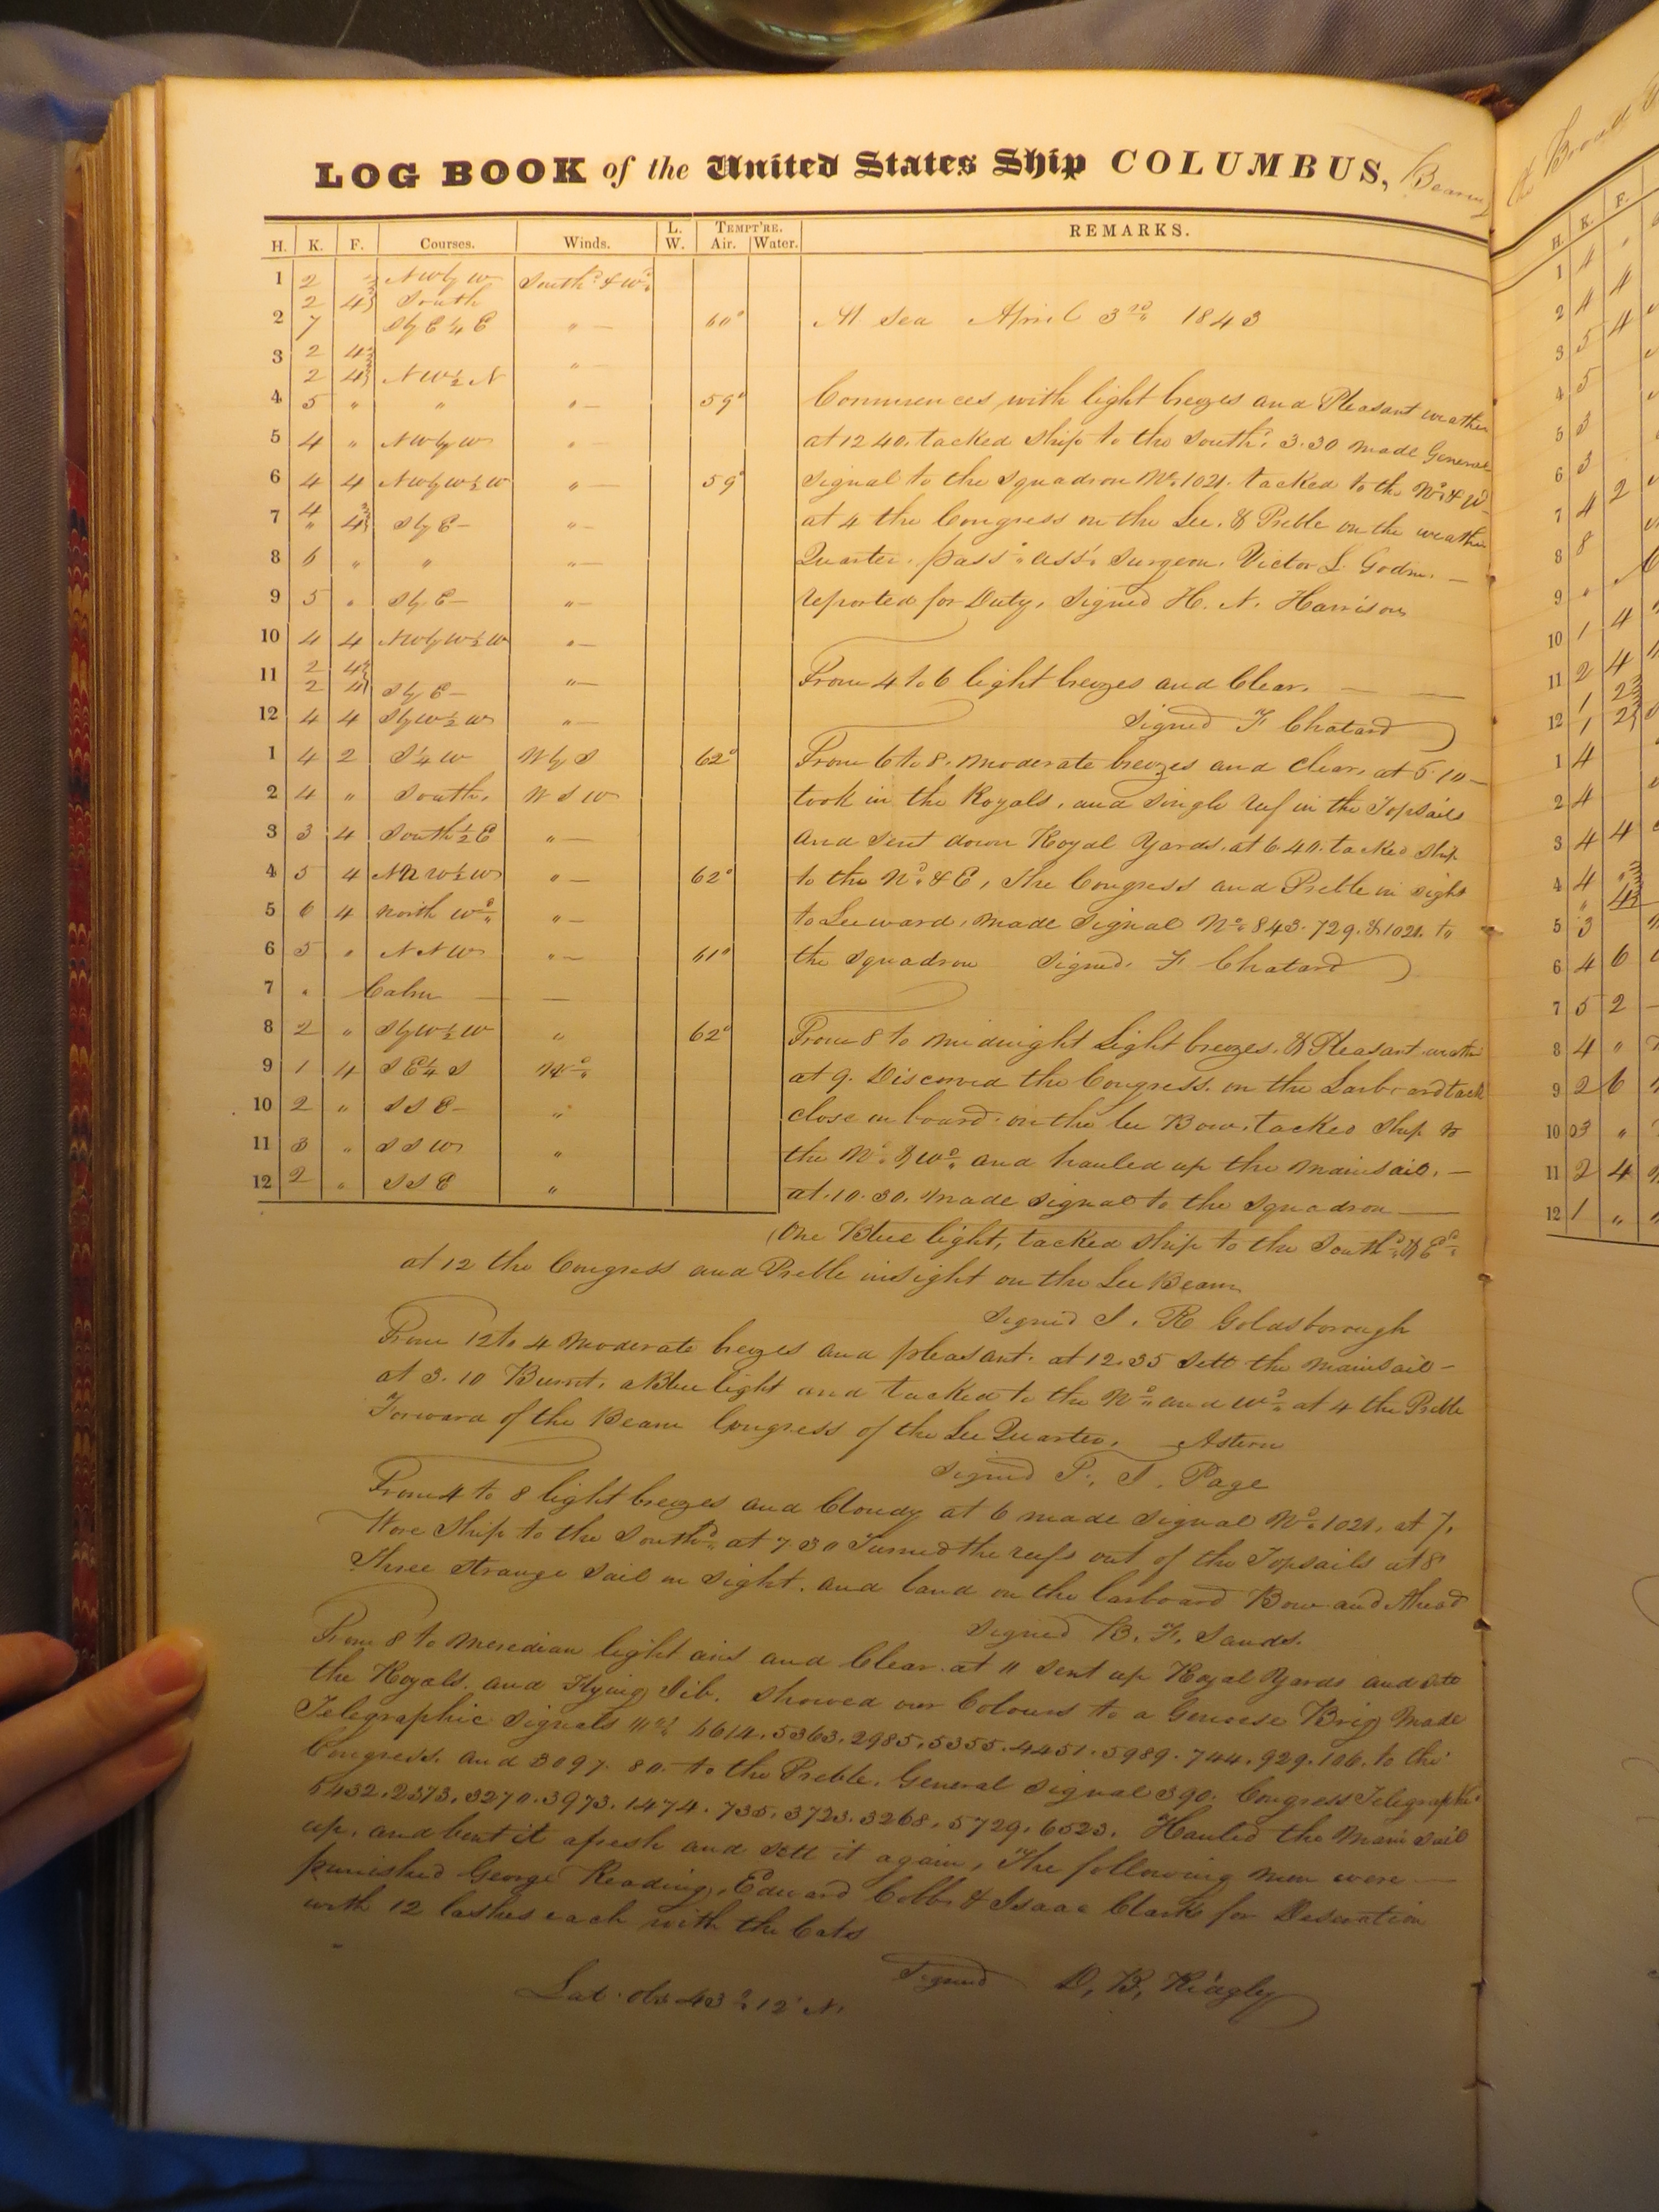 LOG BOOK of the United States Ship COLUMBUS, Bearing
H. K. F. Courses. Winds. L. W. TEMPT'RE. Air. Water. REMARKS.
1 2 NWby W South.d & W.d
2 4 South
2 7 Sby E ¼ E " — 60°
At Sea April 3rd 1843
3 2 4
2 4 NW½N " —
4 5 " " " — 59°
5 4 " NWby W " —
6 4 4 NWby W½W " — 59°
7 4
" 4 Sby E — " —
8 6 " " " —
9 5 " Sby E — " —
10 4 4 NWby W½W " —
11 2 4
2 4 Sby E — " —
12 4 4 Sby W½W " —
1 4 2 S¼W W by S 62°
2 4 " South. W S W
3 3 4 South½E " —
4 5 4 NNW½W " — 62°
5 6 4 North W.d " —
6 5 " N N W " — 61°
7 " Calm — —
8 2 " Sby W½W " 62°
9 1 4 S E¼S W.d
10 2 " S S E — "
11 3 " S S W "
12 2 " S S E "
Commences with light breezes and Pleasant weather
at 12 40. tacked ship to the South.d 3.30 made General
Signal to the Squadron No. 1021. tacked to the N.d & W.d
at 4 the Congress on the Lee. & Preble on the weather
Quarter. pass.d ass't Surgeon. Victor L. —
reported for Duty, Signed H. N. Harrison
From 4 to 6 light breezes and Clear. — —
Signed F Chatard
From 6 to 8. Moderate breezes and clear, at 6.10 —
took in the Royals, and single reef in the Topsails
and sent down Royal Yards. at 6.40. tacked ship
to the N.d & E, The Congress and Preble in sight
to Leeward, made Signal No. 843. 729. & 1021. to
the Squadron Signed. F Chatard
From 8 to midnight Light breezes. & Pleasant weather
at 9. Discovered the Congress. on the Larboard tack
close on board. on the lee Bow. tacked Ship to
the N.d & W.d and hauled up the Mainsail. —
at 10.30. Made Signal to the Squadron —
One Blue light, tacked ship to the South.d & E.d
at 12 the Congress and Preble in sight on the Lee Beam
Signed J. R Goldsborough
From 12 to 4 Moderate breezes and pleasant. at 12.35 Sett the mainsail —
at 3.10 Burnt. a Blue light and tacked to the N.d and W.d at 4 the Preble
Forward of the Beam Congress of the Lee Quarter. Astern
Signed P. J. Page
From 4 to 8 light breezes and Cloudy at 6 made Signal No. 1021. at 7.
Wore Ship to the South.d at 7.30 Turned the reefs out of the Topsails at 8
Three strange Sail in Sight. and land on the larboard Bow and Ahead
Signed B. F. Sands.
From 8 to Meredian light airs and Clear. at 11 Sent up Royal Yards and sett
the Royals. and Flying Jib. Showed our Colours to a Genoese Brig Made
Telegraphic Signals No.s 6614. 5363. 2985. 5355. 4451. 5989. 744. 929. 106. to the
Congress. and 3097. 80. to the Preble. General Signal 390. Congress Telegraphic
6432. 2373. 3270. 3973. 1474. 735. 3723. 3268. 5729. 6523. Hauled the Main Sail
up. and bent it afresh and sett it again, The following Men were —
punished George Reading, Edward Cobb. & Isaac Clark for Desertion
with 12 lashes each with the Cats
Signed D. B. Ridgly
Lat. obs 43° 12' N.